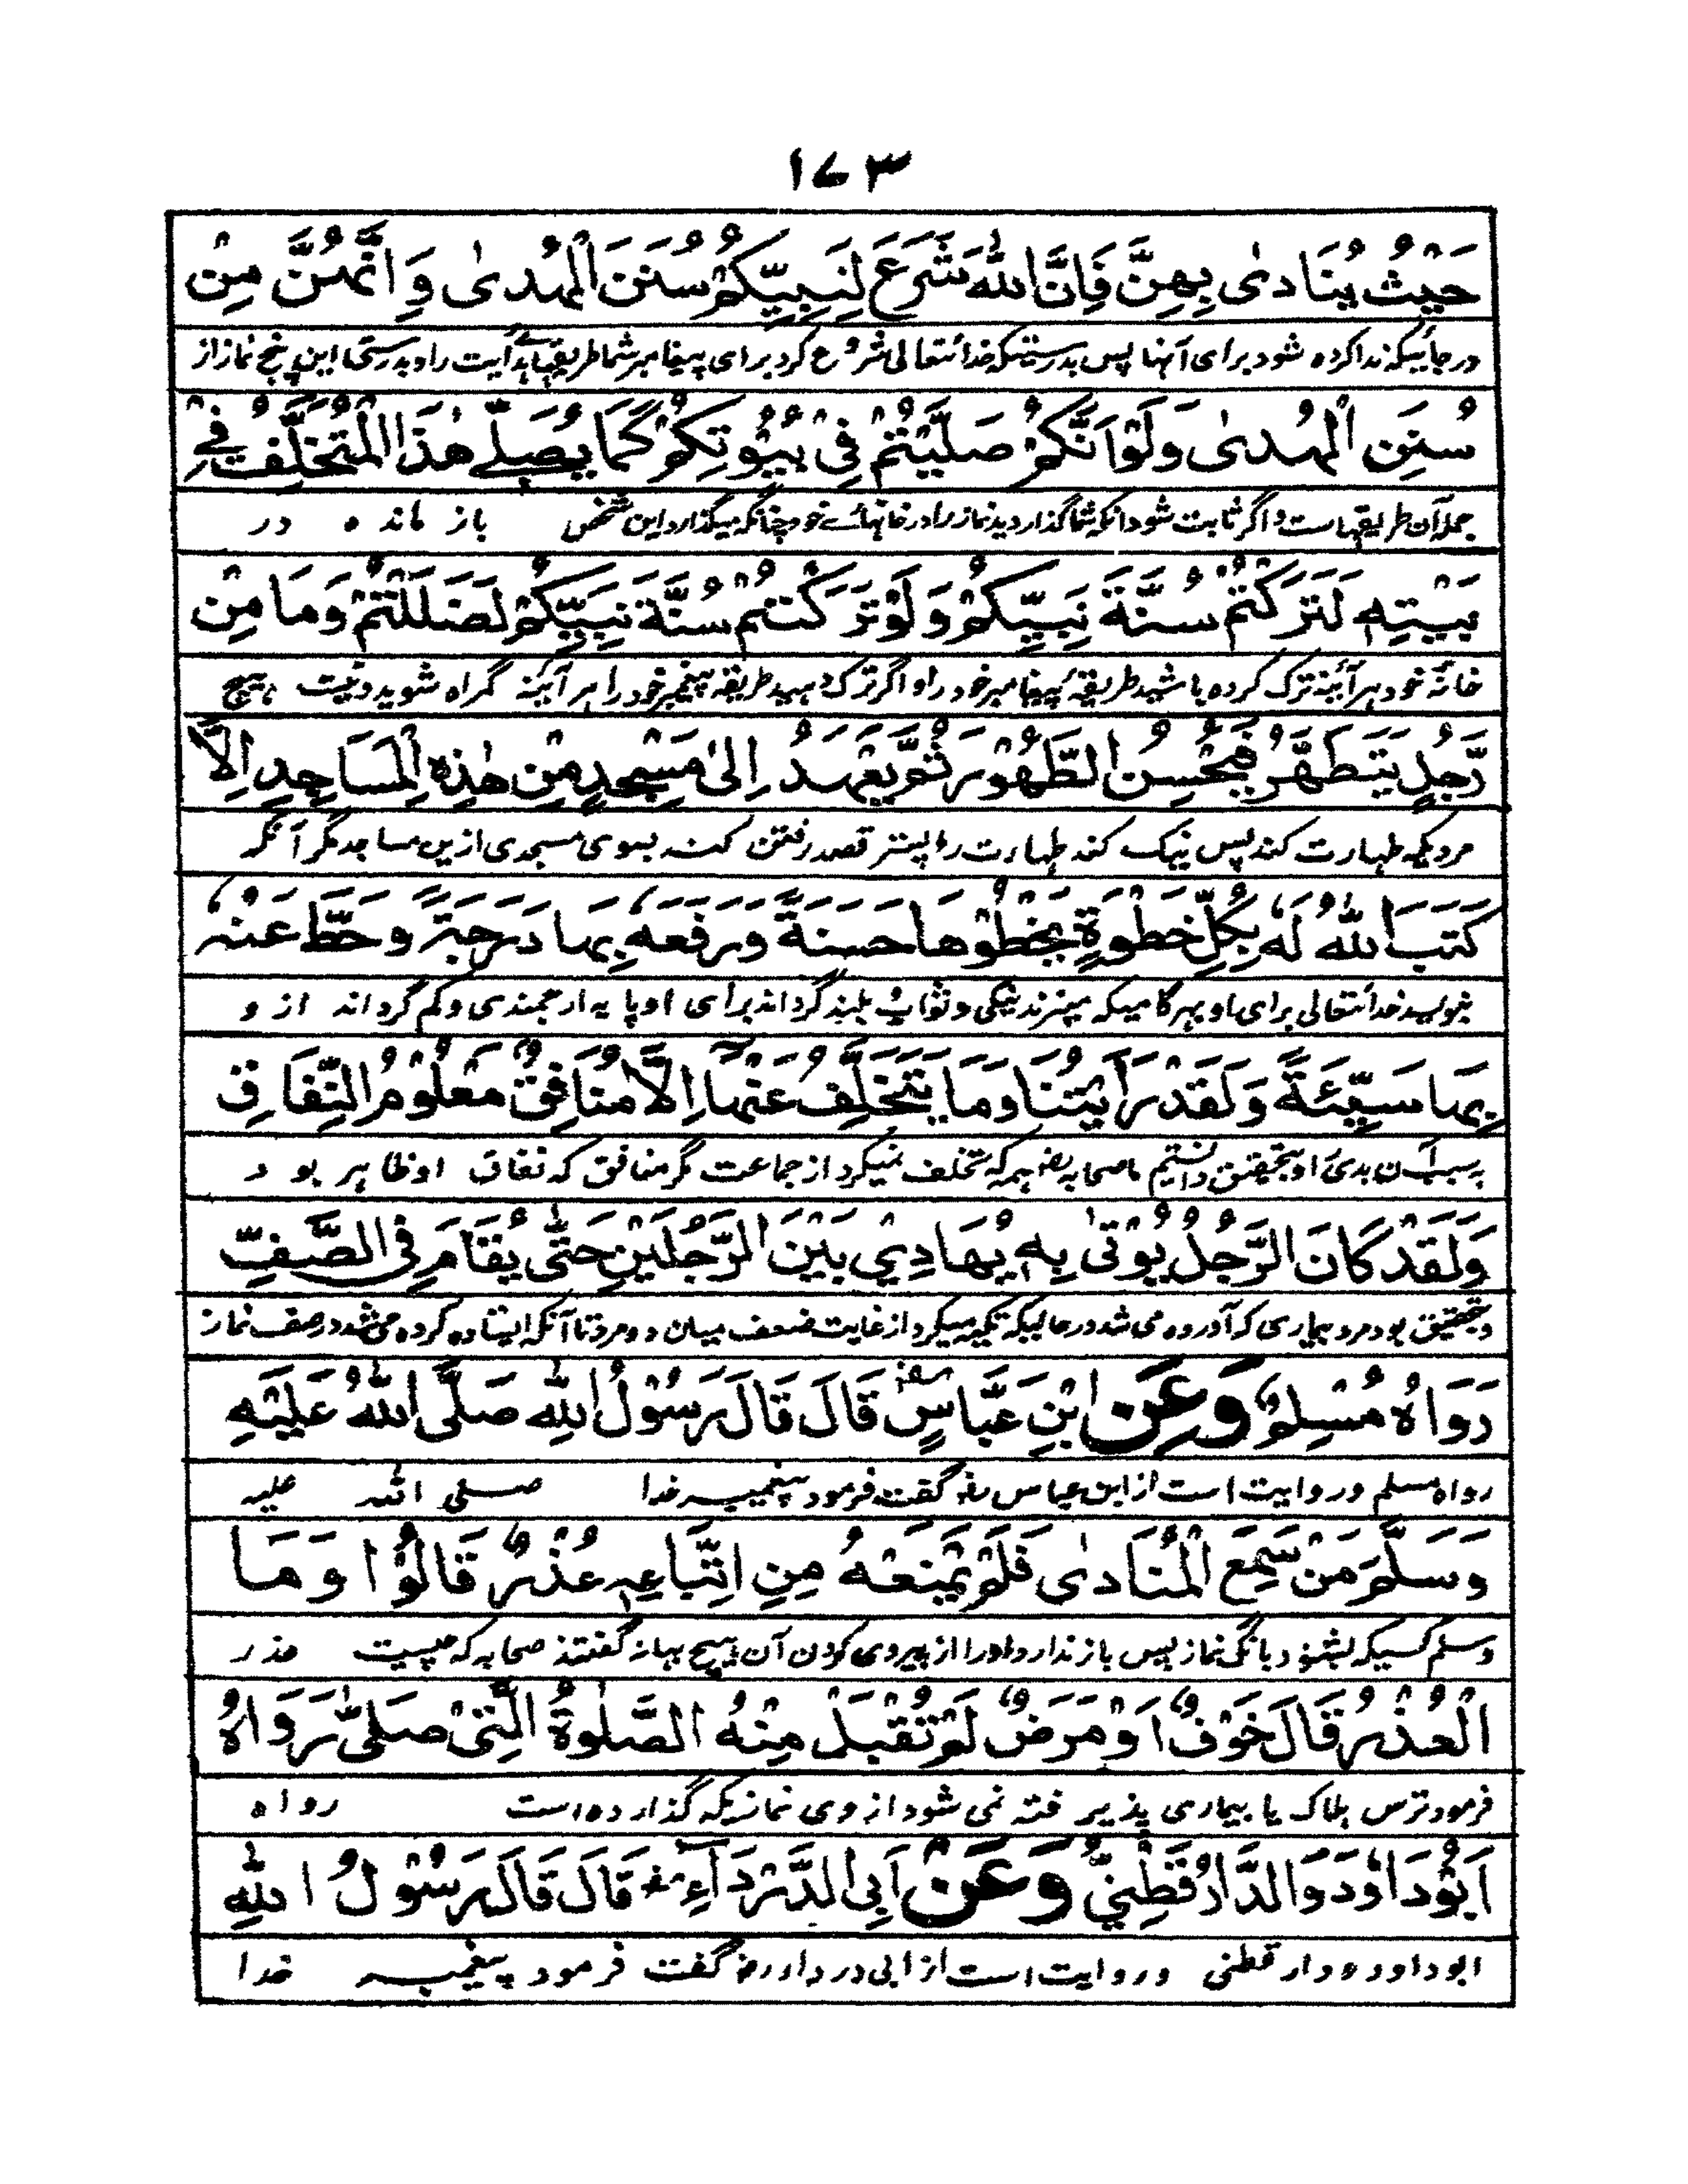 ١٧٣
حَيْثُ يُنَادىٰ بِهِنَّ فَاِنَّ اللّٰهَ شَرَعَ لِنَبِيِّكُمْ سُنَنَ الْهُدىٰ وَ اِنَّهُنَّ مِنْ
در جائیکه ندا کرده شود برای آنها پس بدرستیکه خدائتعالی شرع کرد برای پیغامبر شما طریقهائے هدایت را و بدرستی این پنج نماز از
سُنَنِ الْهُدىٰ وَلَوْ اَنَّكُمْ صَلَّيْتُمْ فِىْ بُيُوْتِكُمْ كَمَا يُصَلِّے هٰذَا الْمُتَخَلِّفُ فِے
جمله آن طریقهاست و اگر ثابت شود آنکه شما گذاردید نماز را در خانهائے خود چنانکه میگذارد این شخص باز مانده در
بَيْتِهٖ لَتَرَكْتُمْ سُنَّةَ نَبِيِّكُمْ وَلَوْ تَرَكْتُمْ سُنَّةَ نَبِيِّكُمْ لَضَلَلْتُمْ وَمَا مِنْ
خانهٔ خود هر آئینه ترک کرده باشید طریقهٔ پیغامبر خود را و اگر ترک دهید طریقه پیغمبر خود را هر آئینه گمراه شوید و نیست هیچ
رَّجُلٍ يَتَطَهَّرُ فَيُحْسِنُ الطُّهُوْرَ ثُمَّ يَعْمَدُ اِلىٰ مَسْجِدٍ مِنْ هٰذِهِ الْمَسَاجِدِ اِلَّا
مردیکه طهارت کند پس نیک کند طهارت را پستر قصد رفتن کند بسوی مسجدی ازین مساجد مگر آنکه
كَتَبَ اللّٰهُ لَهٗ بِكُلِّ خَطْوَةٍ يَخْطُوْهَا حَسَنَةً وَرَفَعَهٗ بِهَا دَرَجَةً وَحَطَّ عَنْهُ
بنویسد خدائتعالی برای او بهر گامیکه میزند نیکی و ثواب و بلند گرداند برای او پایه ارجمندی و کم گرداند از و
بِهَا سَيِّئَةً وَلَقَدْ رَاَيْتُنَا وَمَا يَتَخَلَّفُ عَنْهَا اِلَّا مُنَافِقٌ مَعْلُوْمُ النِّفَاقِ
بسبب آن بدی او بتحقیق دانستیم ما صحابه رضه همه که تخلف نمیکرد از جماعت مگر منافق که نفاق او ظاهر بود
وَلَقَدْ كَانَ الرَّجُلُ يُوْتىٰ بِهٖ يُهَادِىْ بَيْنَ الرَّجُلَيْنِ حَتّٰى يُقَامَ فِى الصَّفِّ
و بتحقیق بود مرد بیماری که آورده می شد در حالیکه تکیه میکرد از غایت ضعف میان دو مرد تا آنکه ایستاده کرده می شد در صف نماز
رَوَاهُ مُسْلِمٌ وَعَنِ ابْنِ عَبَّاسٍ رض قَالَ قَالَ رَسُوْلُ اللّٰهِ صَلَّى اللّٰهُ عَلَيْهِ
رواه مسلم و روایت است از ابن عباس رضه گفت فرمود پیغمبر خدا صلی الله علیه
وَسَلَّمَ مَنْ سَمِعَ الْمُنَادىٰ فَلَمْ يَمْنَعْهُ مِنِ اتِّبَاعِهٖ عُذْرٌ قَالُوْا وَمَا
وسلم کسیکه بشنود بانگ نماز پس باز ندارد او را از پیروی کردن آن هیچ بهانه گفتند صحابه که چیست عذر
الْعُذْرُ قَالَ خَوْفٌ اَوْ مَرَضٌ لَمْ تُقْبَلْ مِنْهُ الصَّلٰوةُ الَّتِىْ صَلّٰى رَوَاهُ
فرمود ترس هلاک یا بیماری پذیرفته نمی شود از وی نمازیکه گذارده است رواه
اَبُوْدَاوُدَ وَالدَّارُقَطْنِىُّ وَعَنْ اَبِى الدَّرْدَاءِ رض قَالَ قَالَ رَسُوْلُ اللّٰهِ
ابوداود و دارقطنی و روایت است از ابی دردا رضه گفت فرمود پیغمبر خدا